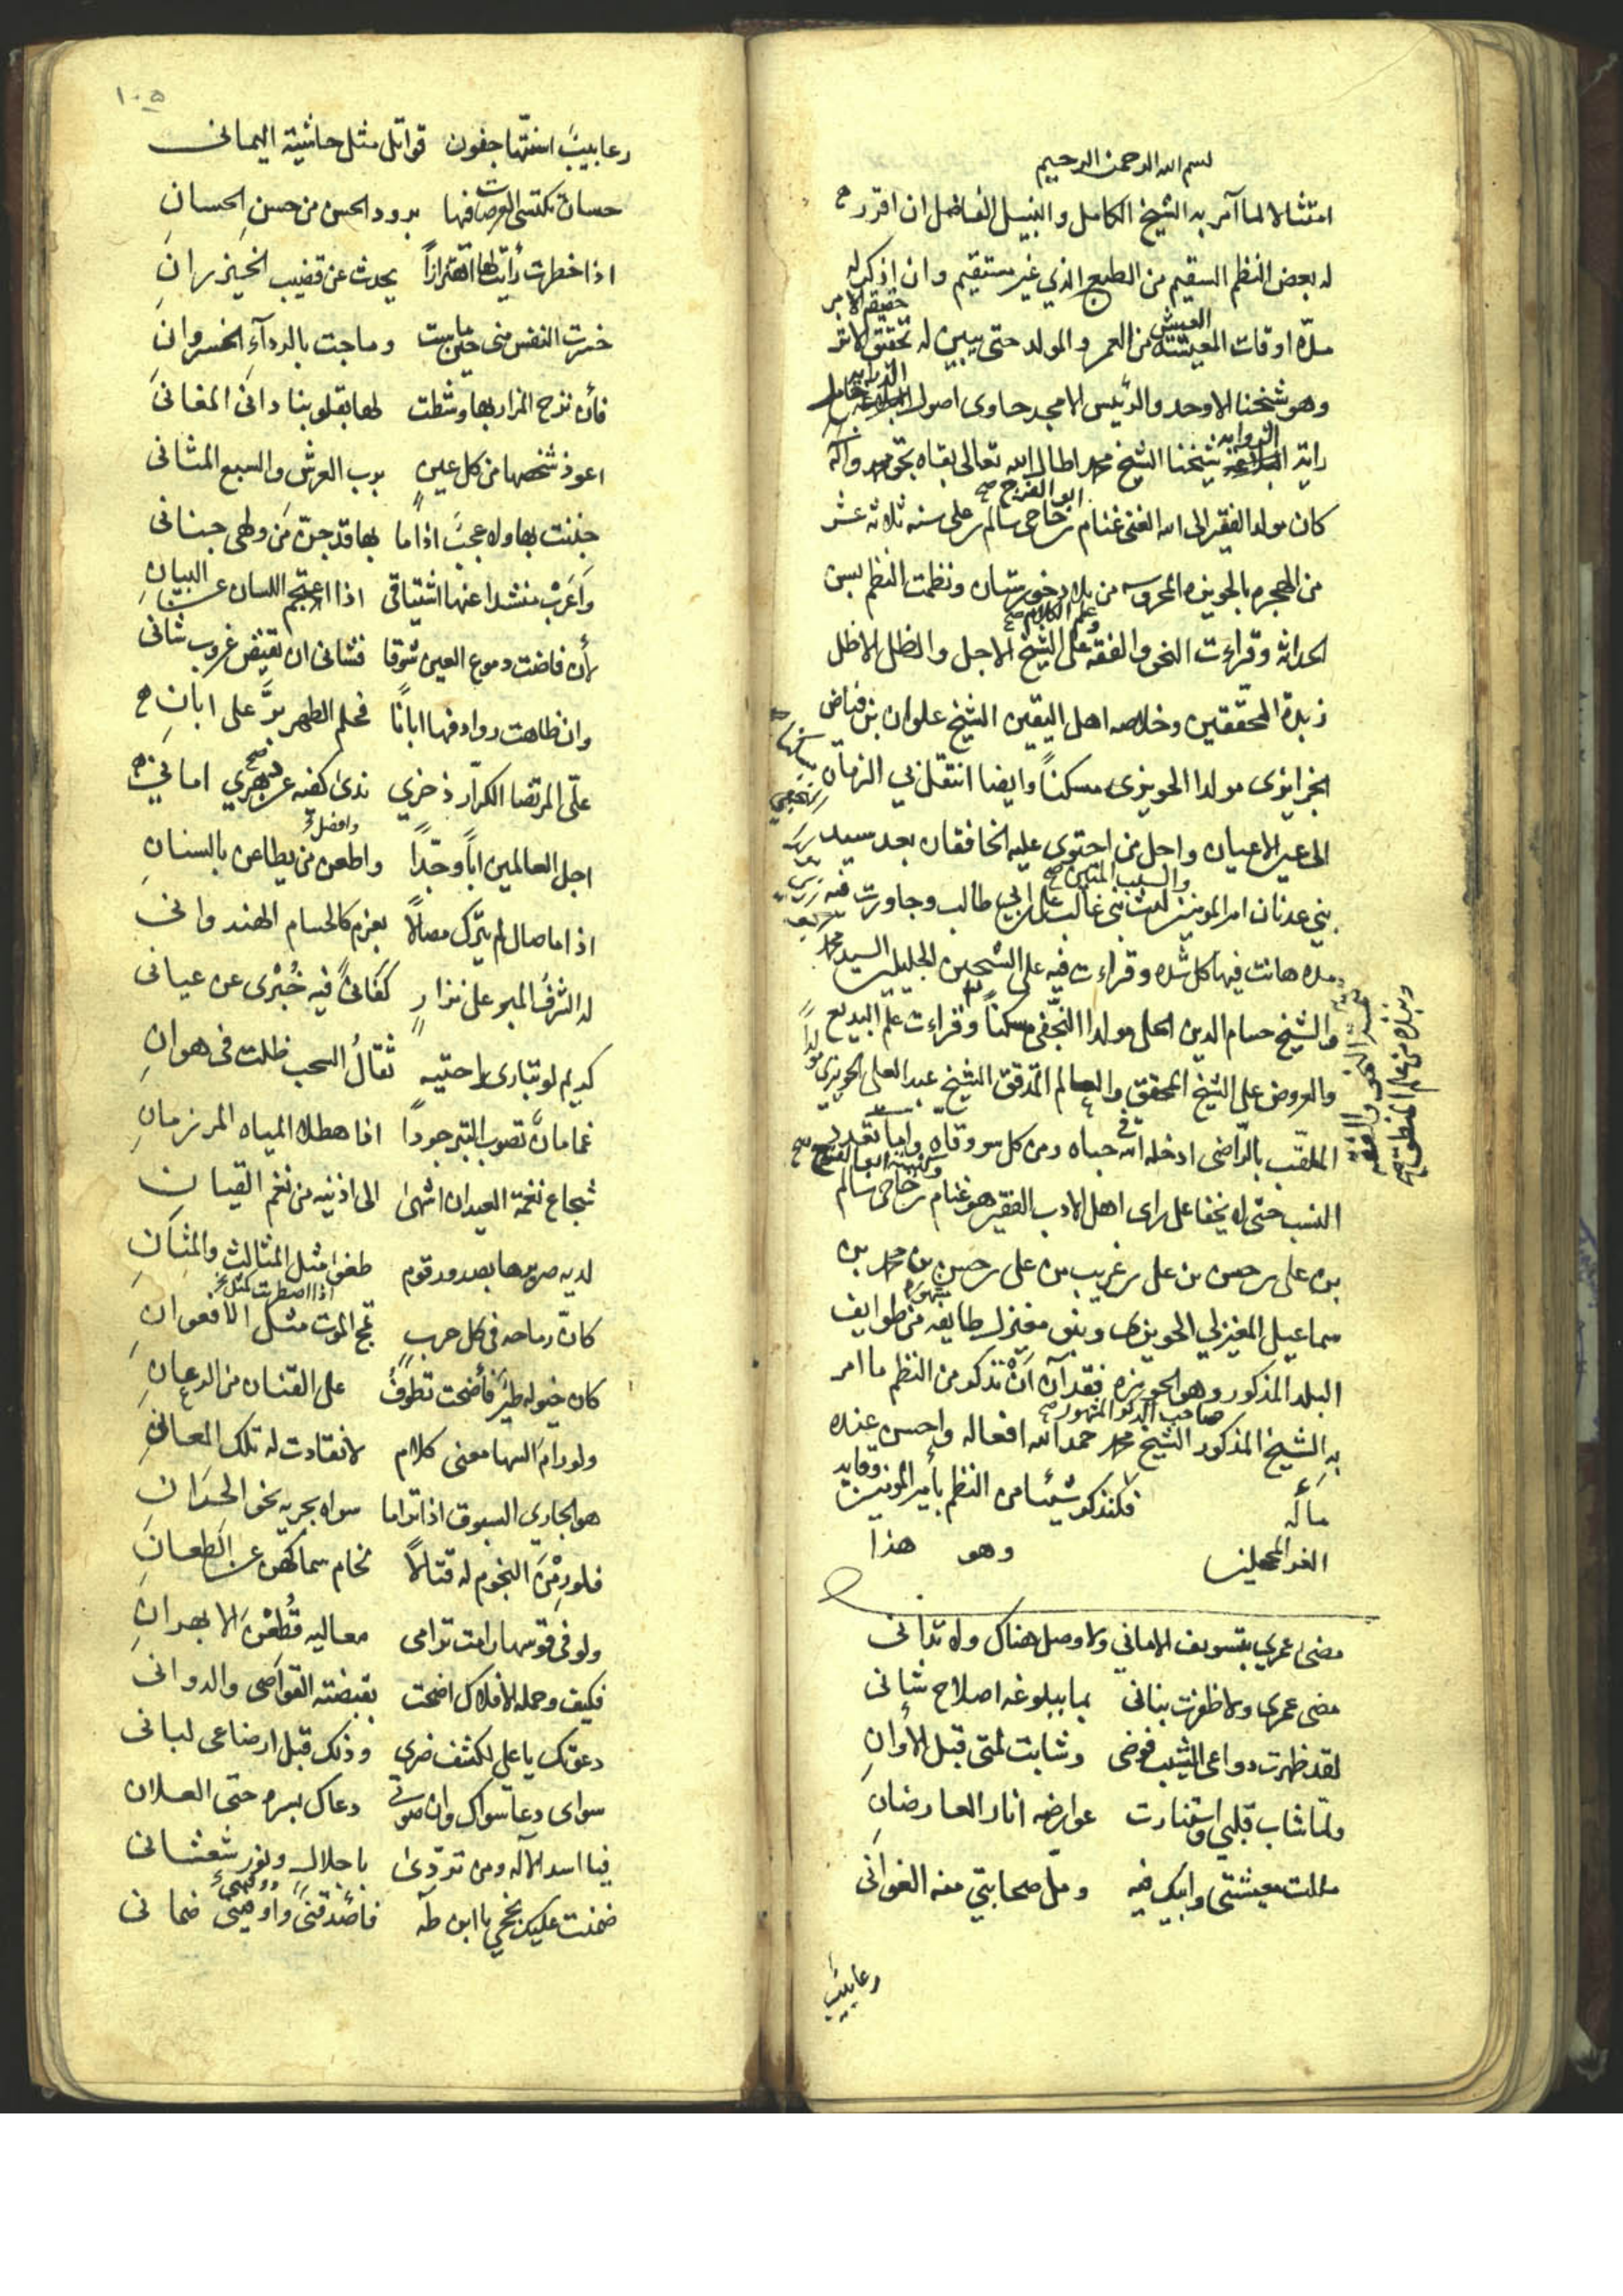 بسم الله الرحمن الرحيم
امتثالا لما آمر به الشيخ الكامل والنبيل الفاضل ان اقرر
له بعض النظم السقيم من الطبع الذي غير مستقيم وان اذكر له
مدّة اوقات المعيشة من العمر والمولد حتى يبين له تحقق الاثر
العيش
حقيقة الامر
وهو شيخنا الاوحد والرّئيس الامجد حاوى اصول البلاغة حامل
الدرايه
راية البلاغة شيخنا الشيخ محمد اطال الله تعالى بقاه بحق محمد وآله
الروايه
كان مولد الفقير الى الله الغنى غنام بن حاجى سالم على سنه ثلاثه عشر
ابو الفرج صح
من الهجره بالحويزه المحروسه من بلاد خوزستان ونظمت النظم بسن
الحداثه وقراءت النحو والفقه على الشيخ الاجل والظل الاظل
وعلم الكلام صح
زبدة المحققين وخلاصه اهل اليقين الشيخ علوان بن فياض
الجزايزى مولدا الحويزى مسكناً وايضا انتقل بي الزمان
الى عين الاعيان واجل من احتوى عليه الخافقان بعد سيد
بني عدنان امير المومنين ليث بنى غالب على ابن ابي طالب وجاورت فيه
مده هانت فيها كل شده وقراءت فيه على الشيخين الجليلين السيد محمد
والشيخ حسام الدين الحلى مولدا النجفى مسكناً وقراءت علم البديع
والعروض على الشيخ المحقق والعالم المدقق الشيخ عبد العلى الحويزى مولداً
ونبذه من علم المنطق صح
الملقّب بالرّاضى ادخله الله فى حماه ومن كل سو وقاه واما تعدد
وكنيته ابو الفتوح صح
النسب حتى لا يخفا على راى اهل الادب الفقير هو غنام بن حاجى سالم
بن على بن حسن بن على بن غريب بن على بن حسن بن محمد بن
سماعيل المغيزلي الحويزى وبنو مغيزل طايفه من طوايف
البلد المذكور وهو الحويزه فقد آن أنْ نذكر من النظم ما امر
به الشيخ المذكور الشيخ محمد حمد الله افعاله واحسن عنده
صاحب الذكر المشهور صح
مآله فلنذكر شيئا من النظم بأمير المومنين وقايد
الغر المحجلين وهو هذا
مضى عمري بتسويف الاماني ولا وصل هناك ولا تدانى
مضى عمرى ولا ظفرت بنانى بما ببلوغه اصلاح شانى
لقد ظهرت دواعى الشيب فوضى وشابت لمتى قبل الأوانِ
ولمّا شاب قلبي واستنارت عوارضه انار العارضانِ
مللت معيشتى وابيك فيه وملّ صحابتي منه الغوانى
رعابيبٌ
١٠٥
رعابيبٌ اسنّتها جفون قواتل مثل حاشية اليمانى
حسان تكتسى العرصات فيها برود الحسن من حسن الحسانِ
اذا خطرت رأيت لها اهتزازاً يحدث عن قضيب الخيزرانِ
خسرت النفس منى حين ماست وماجت بالرداء الخسروانى
فأن نزح المزار بها وشطت لها بقلوبنا دانى المغانى
اعوذ شخصها من كل عينٍ برب العرش والسبع المثانى
جننت بها ولا عجبٌ اذا ما بها قد جنّ من ولهى جنانى
وأعرب منشدا عنها اشتياقى اذا اعتجم اللسان عن البيانِ
لأن فاضت دموع العين شوقا فشانى ان تفيض غروب شانى
وان ظاهت روادفها اباناً فحلم الطهر برّ على ابانِ
علّى المرتضا الكرّار ذخري ندى كفيه عن بحري امانى
اجل العالمين اباً وجدّاً واطعن من يطاعن بالسنانِ
وافضل
اذا ما صال لم يترك مصالاً بعزم كالحسام الهندوانى
له الشرفُ المبر على نزارٍ كفانى فيه خُبْرى عن عيانى
كريم لو تبارى راحتيه ثقالُ السحب ظلت فى هوانِ
غمامانٌ تصوب التبر جوداً اذا هطلا المياه المرزمانِ
شجاع نغمة العيدان اشهىٰ الى اذنيه من نغم القيان
لديه صريرها بصدور قوم طغوا مثل المثالث والمثانِ
كانّ رماحه فى كل حربٍ تمج الموت مثل الافعوانِ
كان خيوله طيرٌ فأضحت تطوفُ على القنان من الرعانِ
ولو رام السها معنى كلام لانقادت له تلك المعانىِ
هو الجاري السبوق اذا تراما سواه بجريه نحو الحِرَانِ
فلو رمْنَ النجوم له قتالاً لخام سماكهن عن الطعانِ
ولو فى قوسها رامت ترامى معاليه قُطِعْنَ الابهرانِ
فكيف وجمله الافلاك اضحت بقبضته القواصى والدوانى
دعوتك يا على لكشف ضرى وذلك قبل ارضاعى لبانى
سواى دعا سواك وان صوتى دعاك بسره حتى العلان
فيا اسد الآله ومن تردّى باجلال ونور شعشانى
ضمنت عليك نجحي يا ابن طه فأصدقنى واوفى ضمانى